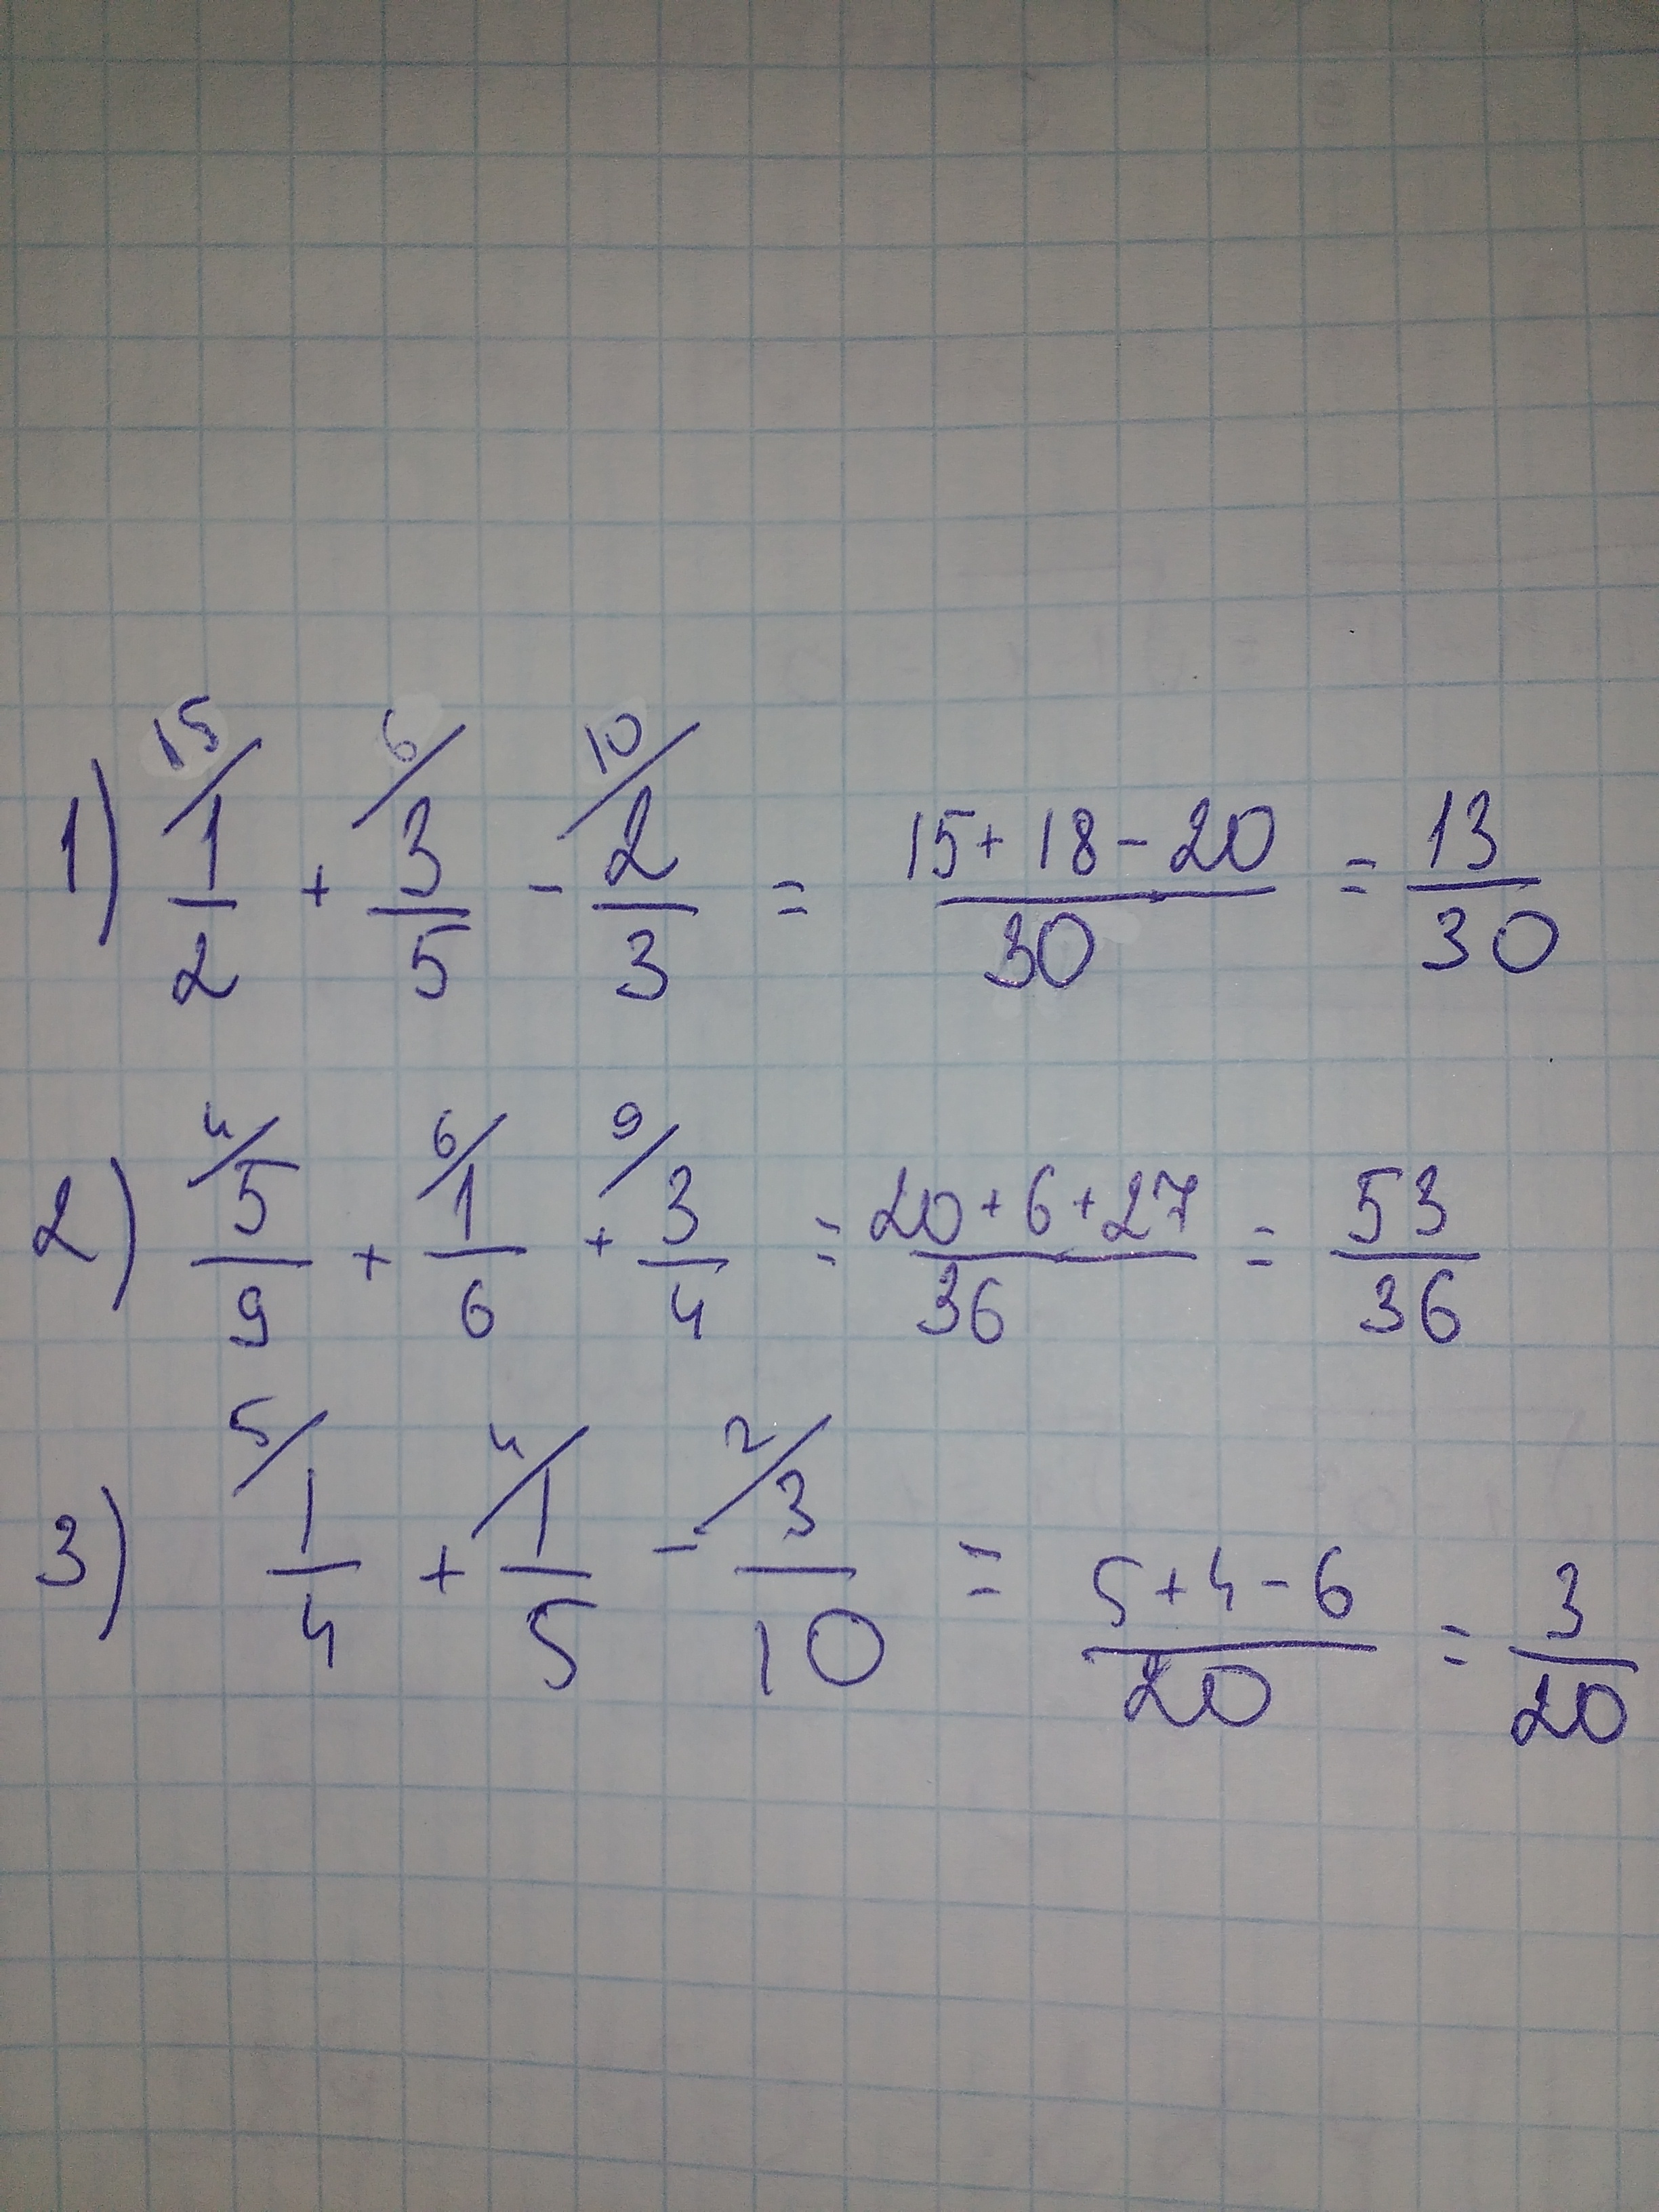 1) 15/ 1/2 + 6/ 3/5 - 10/ 2/3 = 15+18-20/30 = 13/30
2) 4/ 5/9 + 6/ 1/6 + 9/ 3/4 = 20+6+27/36 = 53/36
3) 5/ 1/4 + 4/ 1/5 - 2/ 3/10 = 5+4-6/20 = 3/20